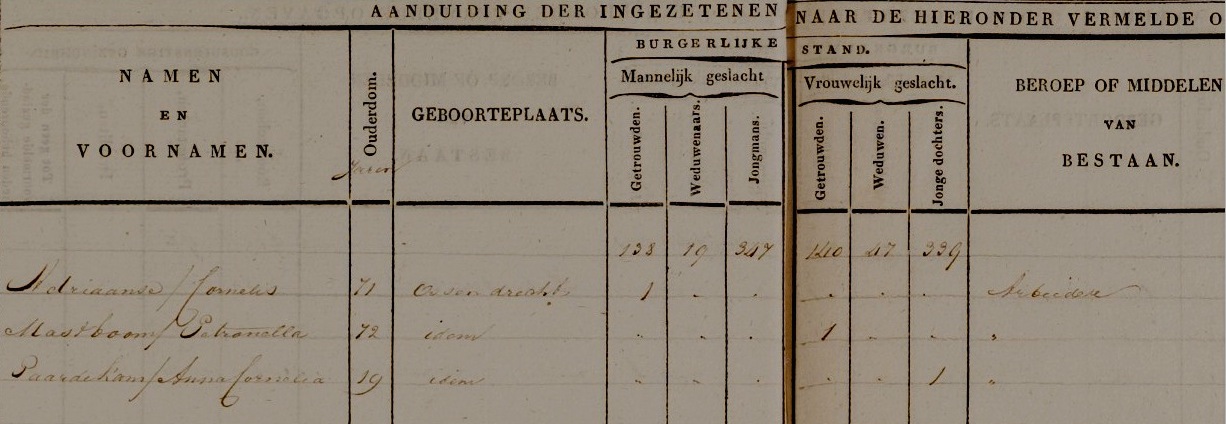 AANDUIDING DER INGEZETENEN NAAR DE HIERONDER VERMELDE O
BURGERLIJKE STAND.
NAMEN
EN
VOORNAMEN.
Ouderdom.
Jaren
GEBOORTEPLAATS.
Mannelijk geslacht
Getrouwden.
Weduwenaars.
Jongmans.
Vrouwelijk geslacht.
Getrouwden.
Weduwen.
Jonge dochters.
BEROEP OF MIDDELEN
VAN
BESTAAN.
138 19 347 140 47 339
Adriaanse / Cornelis 71 Ossendrecht 1 . . . . . Arbeider
Mastboom / Petronella 72 idem " . . 1 . . "
Paardekam / Anna Cornelia 19 idem " . . . . 1 "